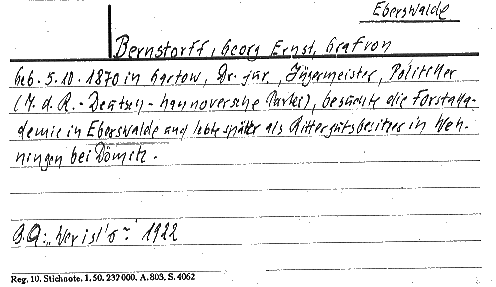 Eberswalde
Bernstorff, Georg Ernst, Graf von
geb. 5.10.1870 in Gartow, Dr. jur., Jägermeister, Politiker
(M.d.R. - Deutsch-hannoversche Partei), besuchte die Forstaka-
demie in Eberswalde und lebte später als Rittergutsbesitzer in Weh-
ningen bei Dömitz.
B.Q: „Wer ist's“ 1922
Reg. 10. Stichnote. 1. 50. 232000. A. 803. S. 4062